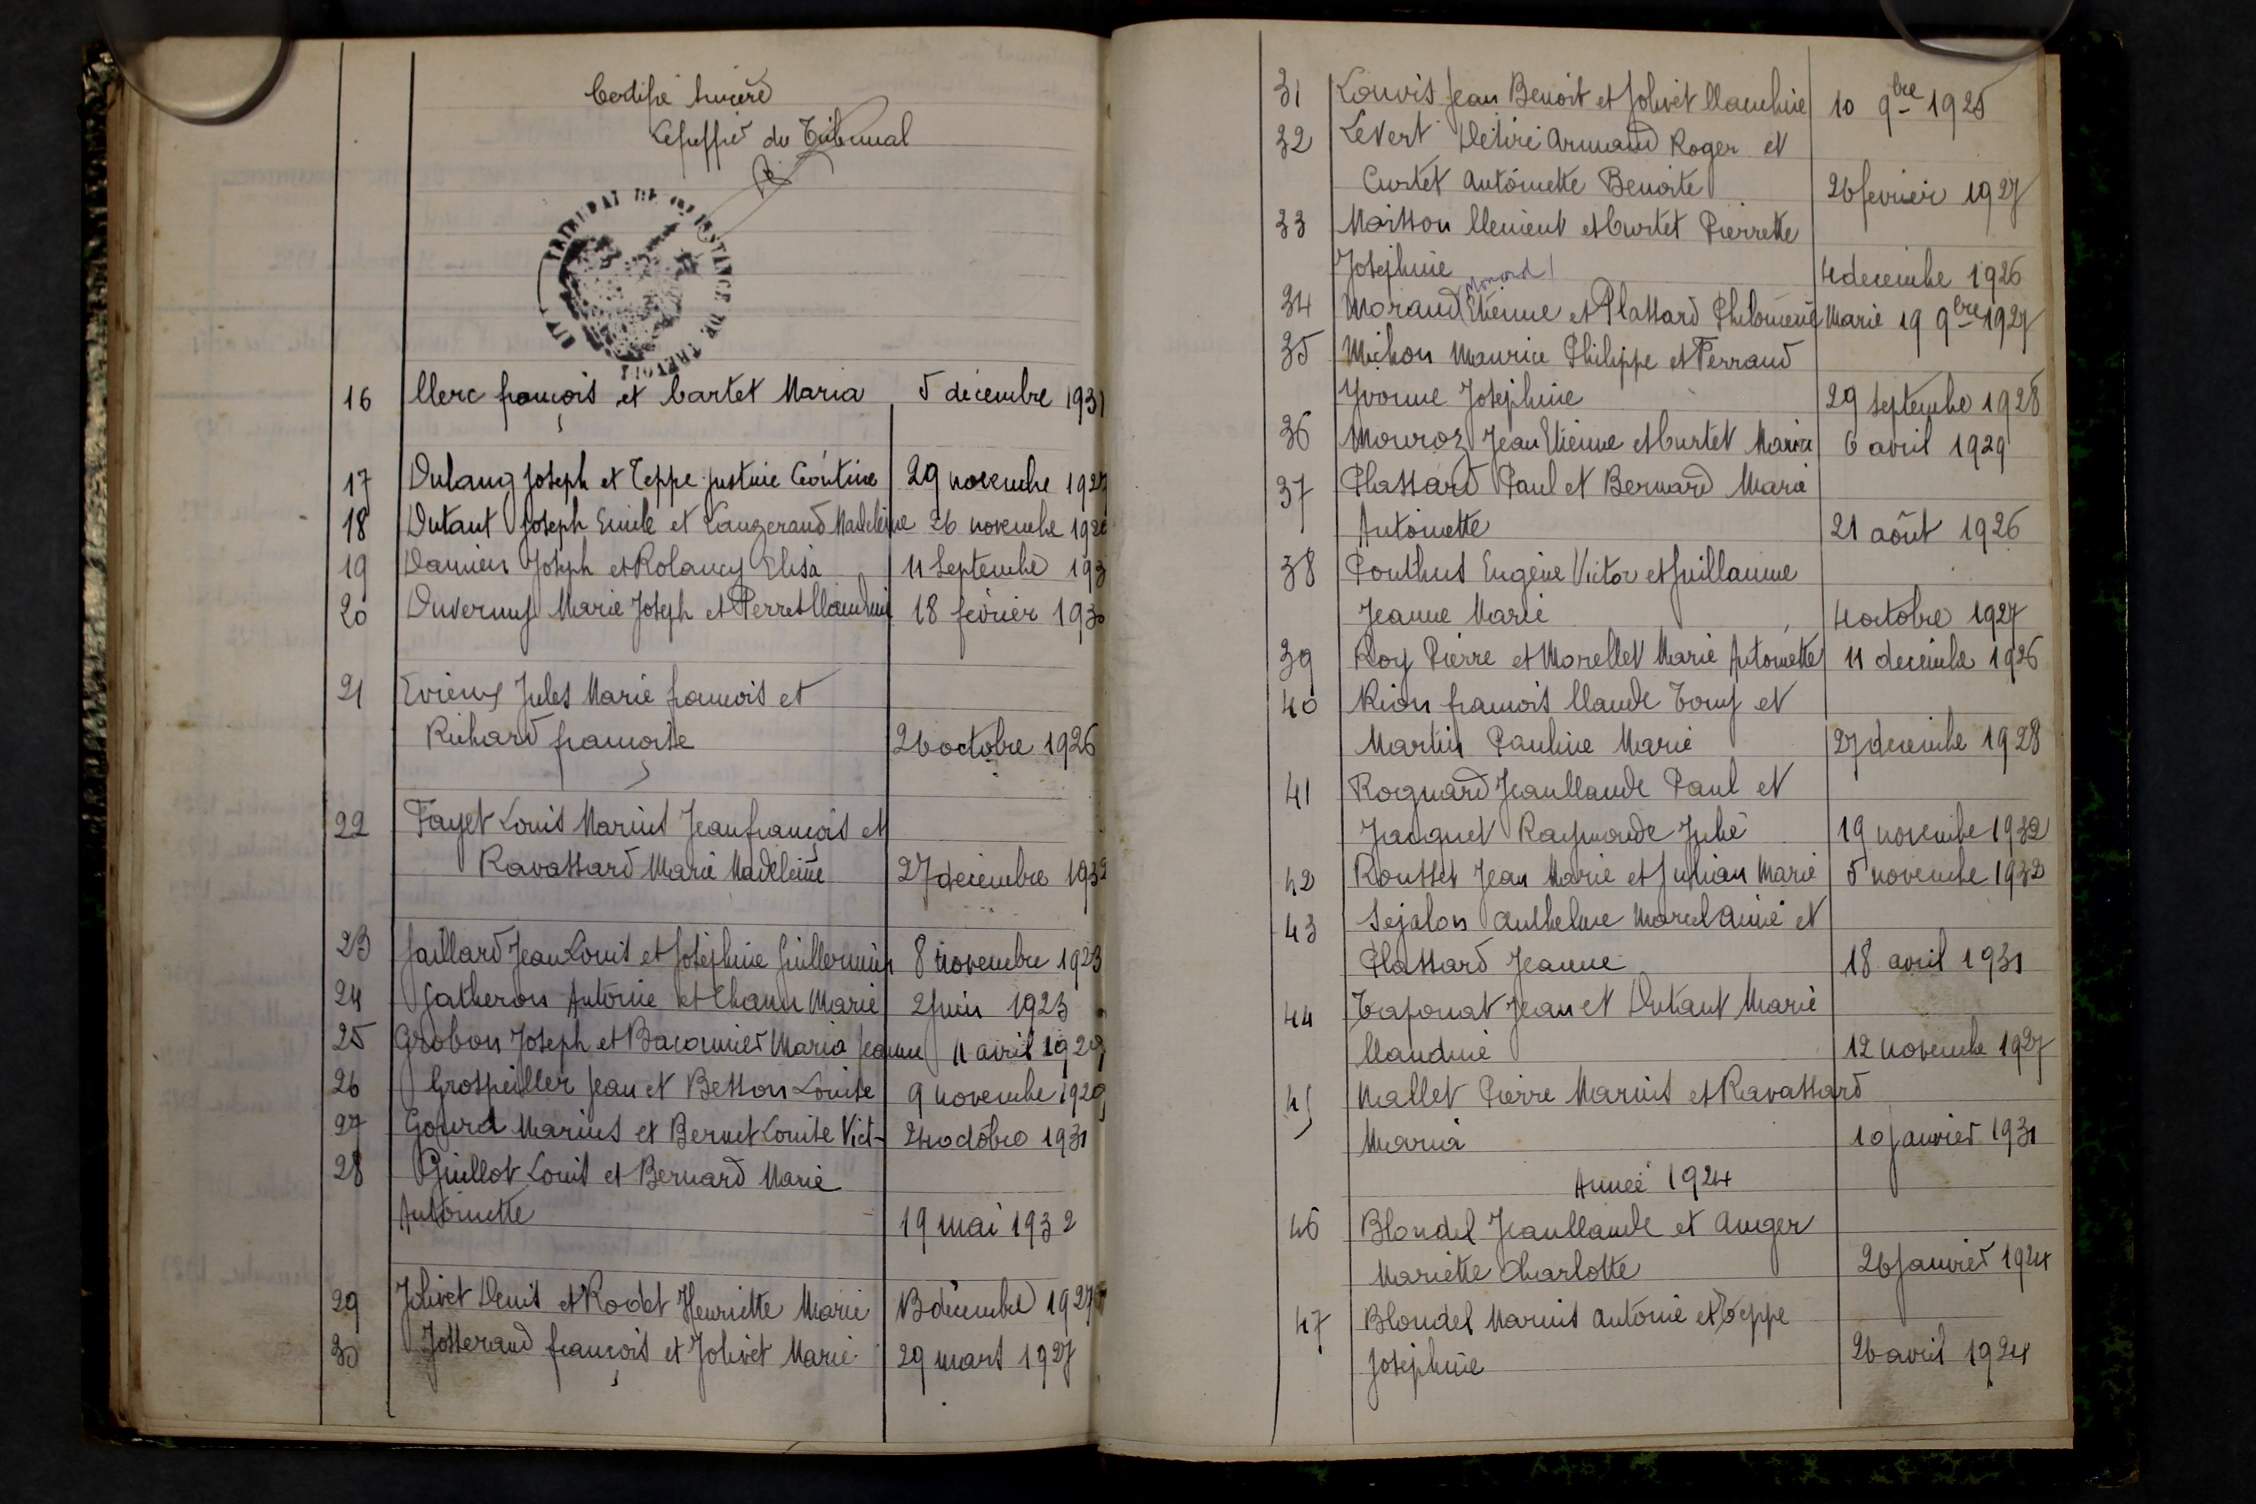 Certifié sincère
Le greffier du Tribunal
TRIBUNAL DE 1ère INSTANCE DE TREVOUX
16 Clerc françois et Cartet Maria 5 décembre 1931
17 Dulang Joseph et Teppe Justine 29 novembre 1927
18 Dutant Joseph Emile et Vauzerand Madeleine 26 novembre 192
19 Damien Joseph et Rolancy Elisa 11 Septembre 193
20 Duvernay Marie Joseph et Perret Claudine 18 février 1930
21 Evieux Jules Marie françois et
Richard françoise 26 octobre 1926
22 Fayet Louis Marius Jean françois et
Ravassard Marie Madeleine 27 décembre 1932
23 Gaillard Jean Louis et Joséphine Guillermin 8 novembre 1923
24 Gatheron Antoine et Chanu Marie 2 Juin 1923
25 Grobon Joseph et Baconnier Maria Jeanne 11 avril 1929
26 Grospeiller Jean et Besson Louise 9 novembre 1929
27 Gourd Marius et Bernet Louise Vict- 24 octobre 1931
28 Guillot Louis et Bernard Marie
Antoinette 19 mai 1932
29 Jolivet Denis et Rodet Henriette Marie 13 décembre 1927
30 Josserand françois et Jolivet Marie 29 mars 1927
31 Louvis Jean Benoit et Jolivet Claudine 10 9bre 1925
32 Levert Désiré Armand Roger et
Curtet Antoinette Benoite 26 février 1927
33 Moisson Clément et Curtet Pierrette
Joséphine 4 décembre 1926
Monond !
34 Morand Etienne et Plassard Philomène Marie 19 9bre 1927
35 Michon Maurice Philippe et Ferrand
Yvonne Joséphine 29 septembre 1928
36 Mouroz Jean Etienne et Curtet Maria 6 avril 1929
37 Plassard Paul et Bernard Marie
Antoinette 21 août 1926
38 Ponthus Eugène Victor et Guillaume
Jeanne Marie 4 octobre 1927
39 Roy Pierre et Morellet Marie Antoinette 11 décembre 1926
40 Rion françois Claude Tony et
Martin Pauline Marie 27 décembre 1928
41 Rognard Jean Claude Paul et
Jacquet Raymonde Julie 19 novembre 1932
42 Rousset Jean Marie et Jullian Marie 5 novembre 1932
43 Sejalon Anthelme Marcel Aimé et
Plassard Jeanne 18 avril 1931
44 Taponat Jean et Dutant Marie
Claudine 12 novembre 1927
45 Mallet Pierre Marius et Ravassard
Maria 10 janvier 1931
Année 1924
46 Blondel Jean Claude et Auger
Mariette Charlotte 26 Janvier 1924
47 Blondel Marius Antoine et Teppe
Joséphine 26 avril 1924